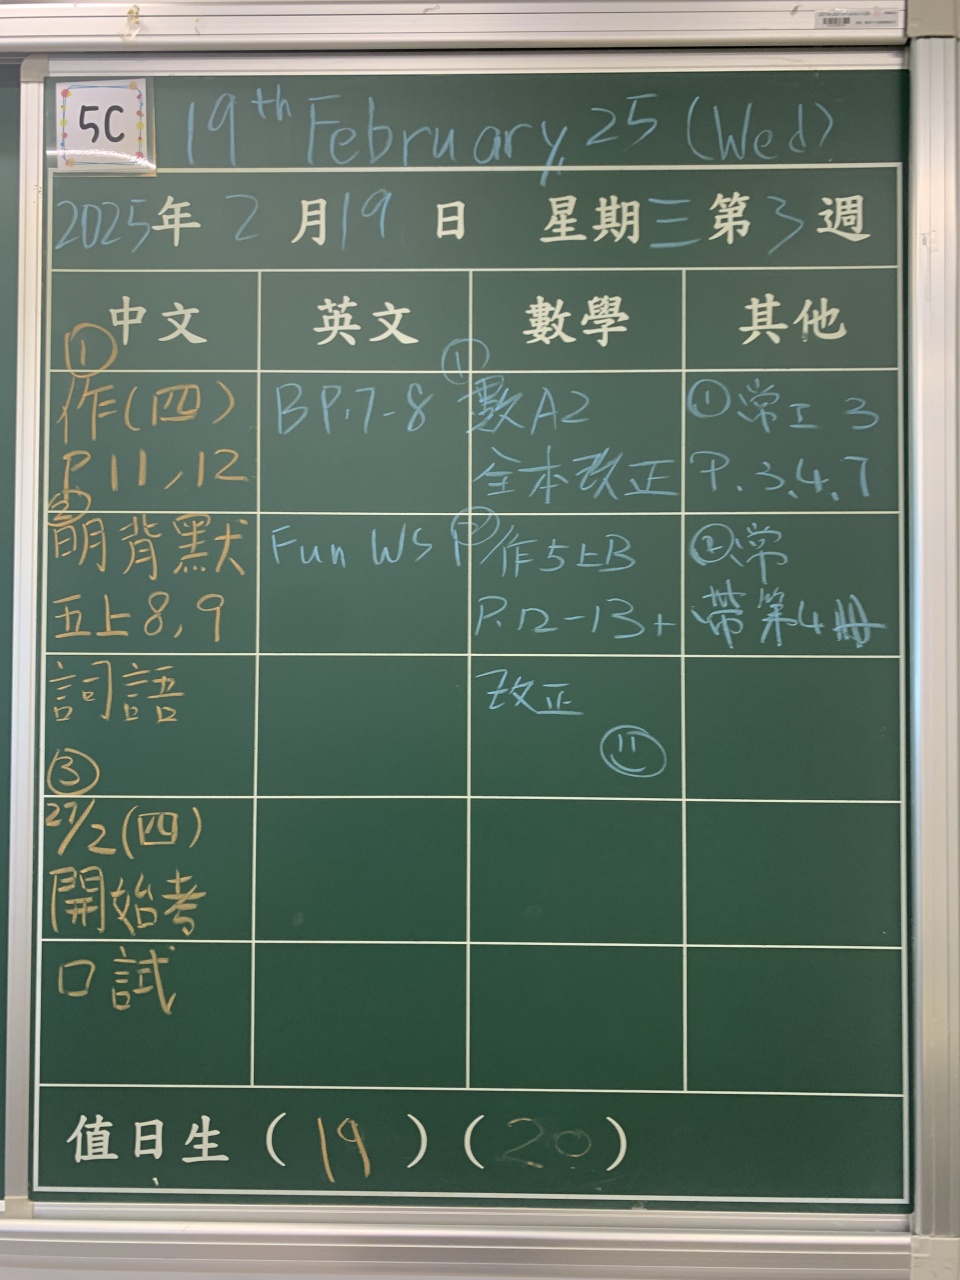 5C
19th February, 25 (Wed)
2025年 2 月 19 日 星期三 第 3 週
中文
①
作(四)
P. 11, 12
②
明背默
五上8, 9
詞語
③
27/2(四)
開始考
口試
英文
B P.7-8
Fun WS P
數學
①
數A2
全本改正
②
作5上B
P.12-13+
改正
其他
①常工 3
P. 3, 4, 7
②常
帶第4冊
值日生 ( 19 ) ( 20 )